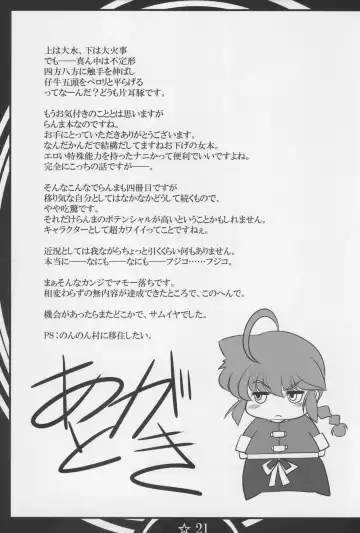 上は大水、下は大火事
でも――真ん中は不定形
四方八方に触手を伸ばし
仔牛五頭をペロリと平らげる
ってなーんだ?どうも片耳豚です。
もうお気付きのこととは思いますが
らんま本なのですね。
お手にとっていただきありがとうございます。
なんだかんだで結構だしてますねお下げの女本。
エロい特殊能力を持ったナニかって便利でいいですよね。
完全にこっちの話ですが――。
そんなこんなでらんまも四冊目ですが
移り気な自分としてはなかなかどうして続くもので、
やや吃驚です。
それだけらんまのポテンシャルが高いということかもしれません。
キャラクターとして超カワイイってことですねぇ。
近況としては我ながらちょっと引くくらい何もありません。
本当に――なにも――なにも――フジコ……フジコ。
まぁそんなカンジでマモー落ちです。
相変わらずの無内容が達成できたところで、このへんで。
機会があったらまたどこかで、サムイヤでした。
PS:のんのん村に移住したい。
あとがき
☆ 21